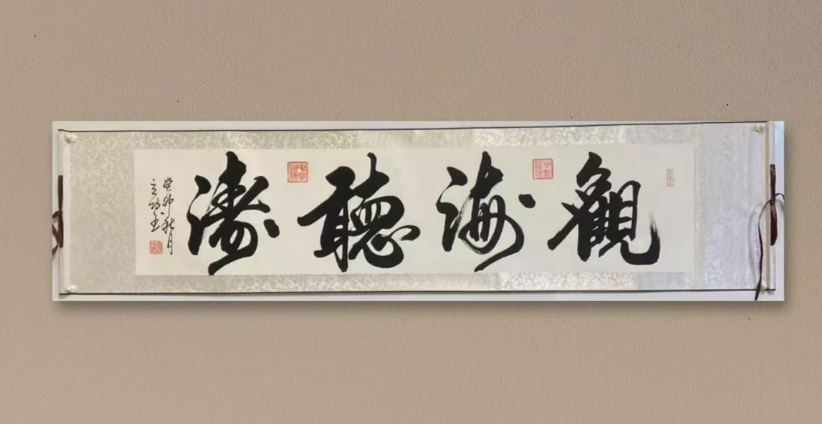 觀海聽濤
癸卯秋月